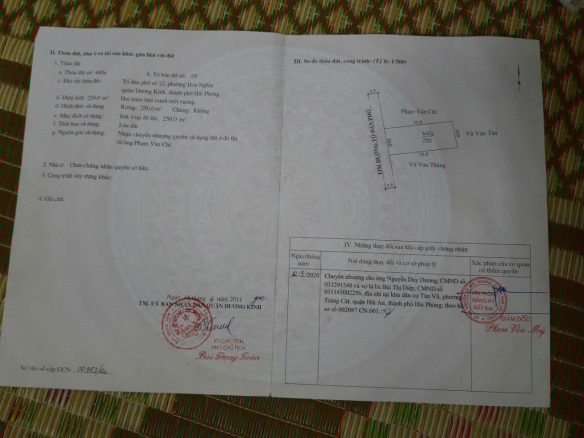 II. Thửa đất, nhà ở và tài sản khác gắn liền với đất
1. Thửa đất
a. Thửa đất số: 640a
b. Tờ bản đồ số: 09
c. Địa chỉ thửa đất: Tổ dân phố số 12, phường Hoà Nghĩa
quận Dương Kinh, thành phố Hải Phòng
d. Diện tích: 250.0 m²
Hai trăm lăm mươi mét vuông
đ. Hình thức sử dụng: Riêng: 250.0 m² Chung: Không
e. Mục đích sử dụng: Đất ở tại đô thị: 250.0 m²
f. Thời hạn sử dụng: Lâu dài
g. Nguồn gốc sử dụng: Nhận chuyển nhượng quyền sử dụng đất ở đô thị
từ ông Phạm Văn Chỉ
2. Nhà ở: Chưa chứng nhận quyền sở hữu.
3. Công trình xây dựng khác:
4. Ghi chú:
Ngày 6 2011
TM. UỶ BAN NHÂN DÂN QUẬN DƯƠNG KINH
KT. CHỦ TỊCH
PHÓ CHỦ TỊCH
Bùi Trọng Đoàn
Số vào sổ cấp GCN:
III. Sơ đồ thửa đất, công trình: (Tỷ lệ: 1/500)
TIM ĐƯỜNG TỔ DÂN PHỐ
Phạm Văn Chỉ
250
Vũ Văn Tân
Vũ Văn Thắng
IV. Những thay đổi sau khi cấp giấy chứng nhận
Ngày/tháng
năm
Nội dung thay đổi và cơ sở pháp lý
Xác nhận của cơ quan
có thẩm quyền
2020
Chuyển nhượng cho ông Nguyễn Duy Dương, CMND số
031291549 và vợ là bà Bùi Thị Diệp, CMND số
031183002256, địa chỉ tại khu dân cư Tân Vũ, phường
Tràng Cát, quận Hải An, thành phố Hải Phòng; theo hồ
sơ số 002087.CN.001
VĂN PHÒNG
ĐĂNG KÝ
ĐẤT ĐAI
GIÁM ĐỐC